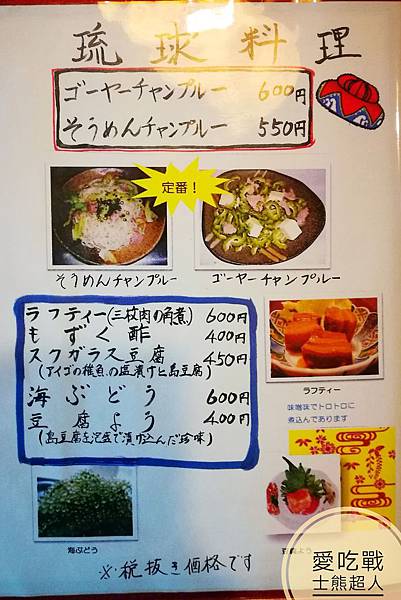 琉球料理
ゴーヤーチャンプルー 600円
そうめんチャンプルー 550円
定番！
そうめんチャンプルー
ゴーヤーチャンプルー
ラフティー(三枚肉の角煮) 600円
もずく酢 400円
スクガラス豆腐 450円
(アイゴの稚魚の塩漬けと島豆腐)
海ぶどう 600円
豆腐よう 400円
(島豆腐を泡盛で漬け込んだ珍味)
ラフティー
味噌味でトロトロに
煮込んであります
海ぶどう
豆腐よう
※税抜き価格です
愛吃戰
士熊超人